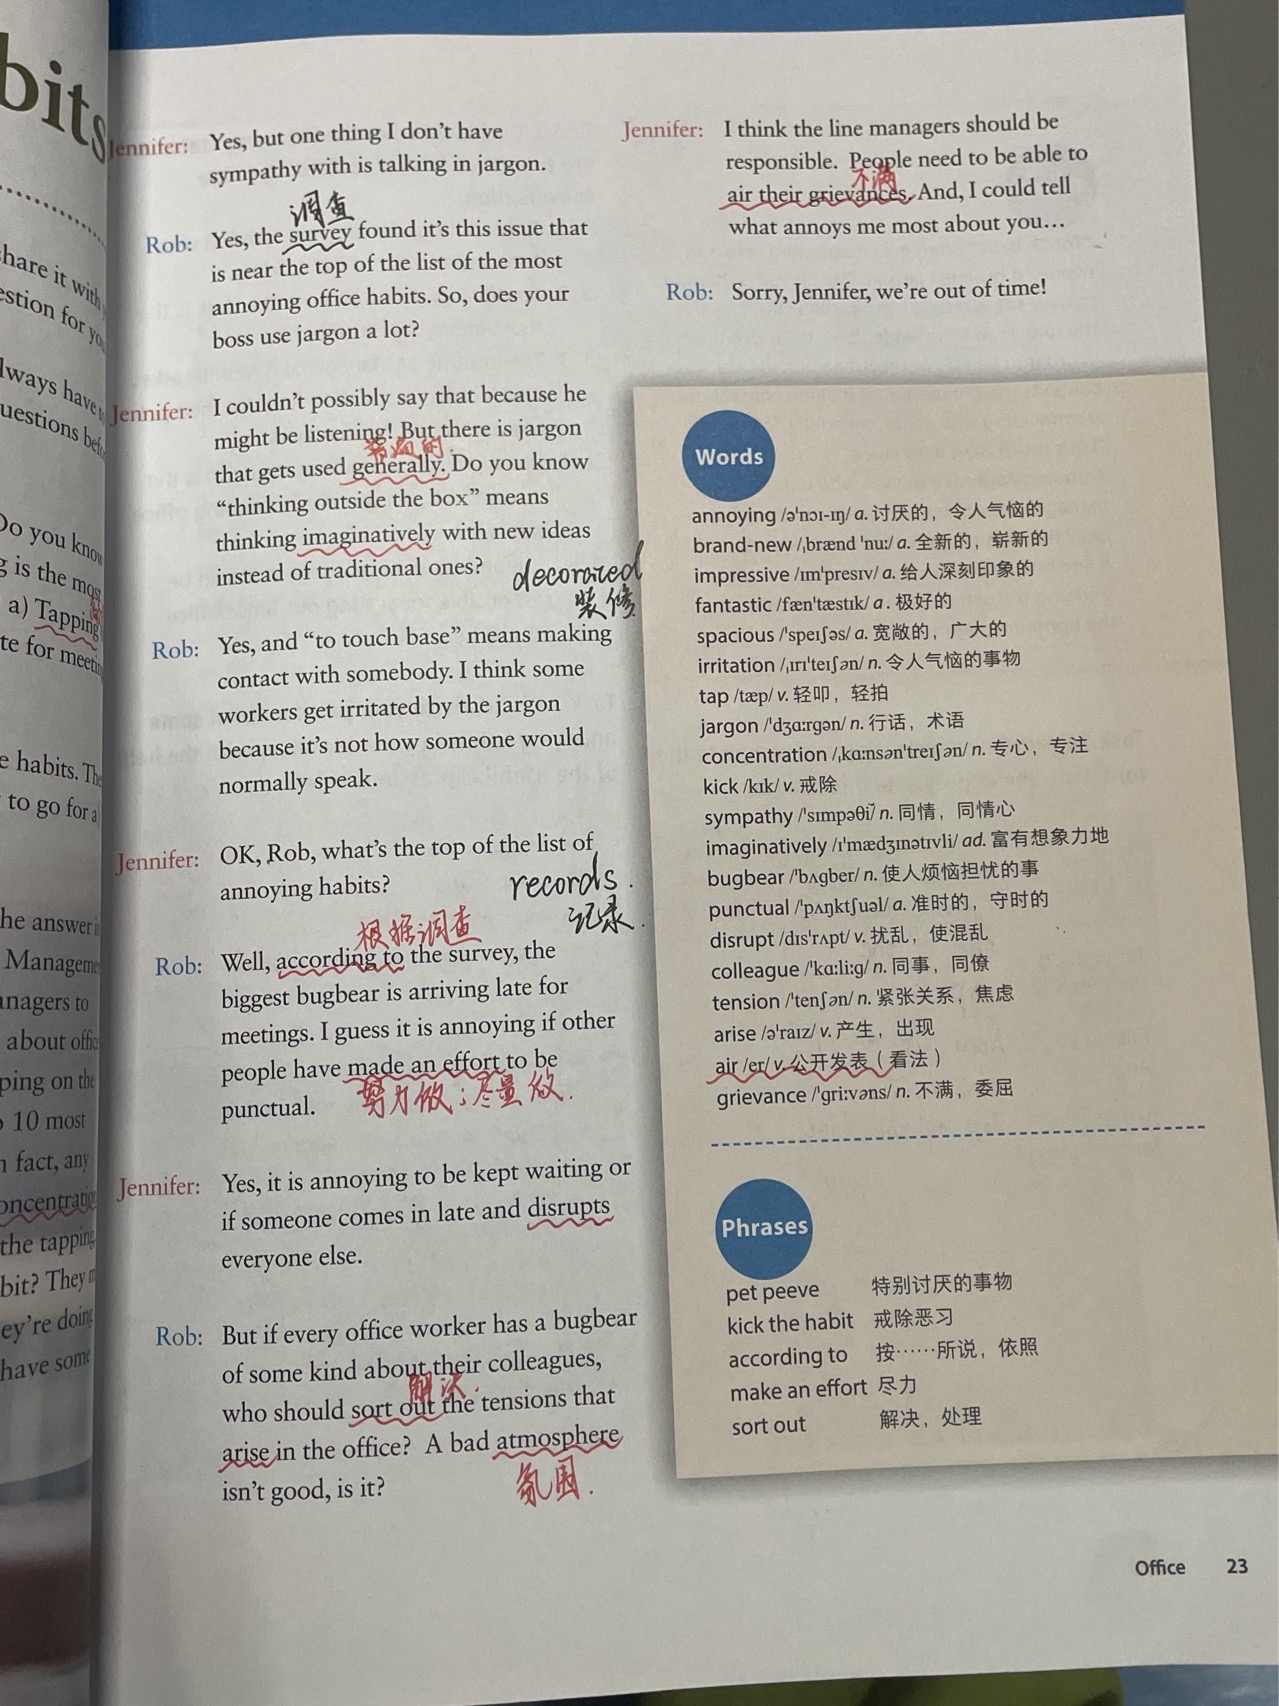 bits
share it with
estion for you
lways have
uestions bef
Do you know
g is the most
a) Tapping
te for meetin
e habits. The
to go for a
he answer
Manageme
anagers to
about offic
ping on the
10 most
n fact, any
oncentratio
the tapping
bit? They
ey're doing
have some
Jennifer: Yes, but one thing I don't have
sympathy with is talking in jargon.
调查
Rob: Yes, the survey found it's this issue that
is near the top of the list of the most
annoying office habits. So, does your
boss use jargon a lot?
Jennifer: I couldn't possibly say that because he
might be listening! But there is jargon
普遍的.
that gets used generally. Do you know
"thinking outside the box" means
thinking imaginatively with new ideas
instead of traditional ones?
decorated
装修
Rob: Yes, and "to touch base" means making
contact with somebody. I think some
workers get irritated by the jargon
because it's not how someone would
normally speak.
Jennifer: OK, Rob, what's the top of the list of
annoying habits?
records.
记录.
根据调查
Rob: Well, according to the survey, the
biggest bugbear is arriving late for
meetings. I guess it is annoying if other
people have made an effort to be
punctual.
努力做；尽量做.
Jennifer: Yes, it is annoying to be kept waiting or
if someone comes in late and disrupts
everyone else.
Rob: But if every office worker has a bugbear
of some kind about their colleagues,
解决.
who should sort out the tensions that
arise in the office? A bad atmosphere
isn't good, is it?
氛围.
Jennifer: I think the line managers should be
responsible. People need to be able to
不满
air their grievances. And, I could tell
what annoys me most about you…
Rob: Sorry, Jennifer, we're out of time!
Words
annoying /əˈnɔɪ-ɪŋ/ a. 讨厌的，令人气恼的
brand-new /ˌbrænd ˈnuː/ a. 全新的，崭新的
impressive /ɪmˈpresɪv/ a. 给人深刻印象的
fantastic /fænˈtæstɪk/ a. 极好的
spacious /ˈspeɪʃəs/ a. 宽敞的，广大的
irritation /ˌɪrɪˈteɪʃən/ n. 令人气恼的事物
tap /tæp/ v. 轻叩，轻拍
jargon /ˈdʒɑːrgən/ n. 行话，术语
concentration /ˌkɑːnsənˈtreɪʃən/ n. 专心，专注
kick /kɪk/ v. 戒除
sympathy /ˈsɪmpəθi/ n. 同情，同情心
imaginatively /ɪˈmædʒɪnətɪvli/ ad. 富有想象力地
bugbear /ˈbʌgber/ n. 使人烦恼担忧的事
punctual /ˈpʌŋktʃuəl/ a. 准时的，守时的
disrupt /dɪsˈrʌpt/ v. 扰乱，使混乱
colleague /ˈkɑːliːg/ n. 同事，同僚
tension /ˈtenʃən/ n. 紧张关系，焦虑
arise /əˈraɪz/ v. 产生，出现
air /er/ v. 公开发表（看法）
grievance /ˈgriːvəns/ n. 不满，委屈
Phrases
pet peeve 特别讨厌的事物
kick the habit 戒除恶习
according to 按……所说，依照
make an effort 尽力
sort out 解决，处理
Office 23